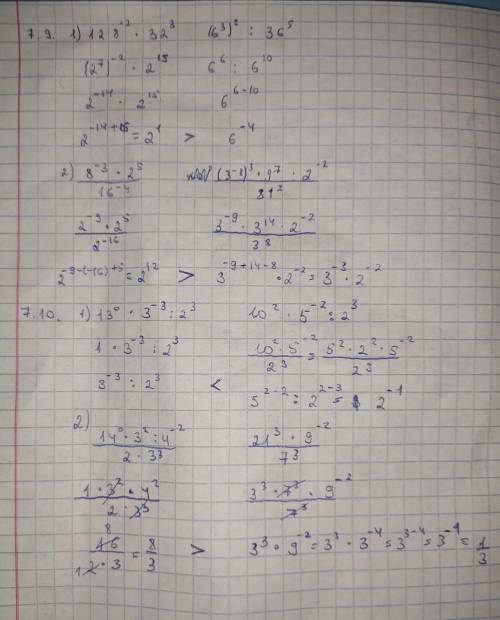 7.9. 1) 128⁻² · 32³ (6³)² : 36⁵
(2⁷)⁻² · 2¹⁵ 6⁶ : 6¹⁰
2⁻¹⁴ · 2¹⁵ 6⁶⁻¹⁰
2⁻¹⁴⁺¹⁵ = 2¹ > 6⁻⁴
2) 8⁻³ · 2⁵ / 16⁻⁴ (3⁻³)³ · 9⁷ · 2⁻² / 81²
2⁻⁹ · 2⁵ / 2⁻¹⁶ 3⁻⁹ · 3¹⁴ · 2⁻² / 3⁸
2⁻⁹⁻⁽⁻¹⁶⁾⁺⁵ = 2¹² > 3⁻⁹⁺¹⁴⁻⁸ · 2⁻² = 3⁻³ · 2⁻²
7.10. 1) 13⁰ · 3⁻³ : 2³ 10² · 5⁻² : 2³
1 · 3⁻³ : 2³ 10² · 5⁻² / 2³ = 5² · 2² · 5⁻² / 2³
3⁻³ : 2³ < 5²⁻² : 2²⁻³ = 2⁻¹
2) 14⁰ · 3² : 4⁻² / 2 · 3³ 21³ · 9⁻² / 7³
1 · 3² · 4² / 2 · 3³ 3³ · 7³ · 9⁻² / 7³
8 16 / 1 2 · 3 = 8 / 3 > 3³ · 9⁻² = 3³ · 3⁻⁴ = 3³⁻⁴ = 3⁻¹ = 1 / 3